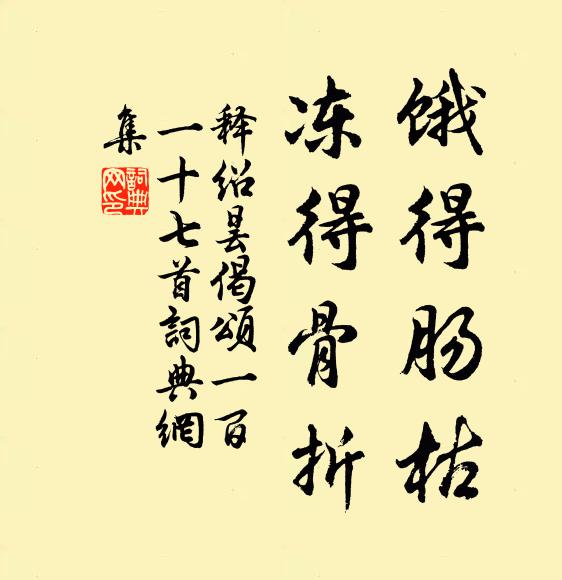 饿得肠枯
冻得骨折
释绍昙偈颂一百
一十七首詞典網
集
詞典
网印